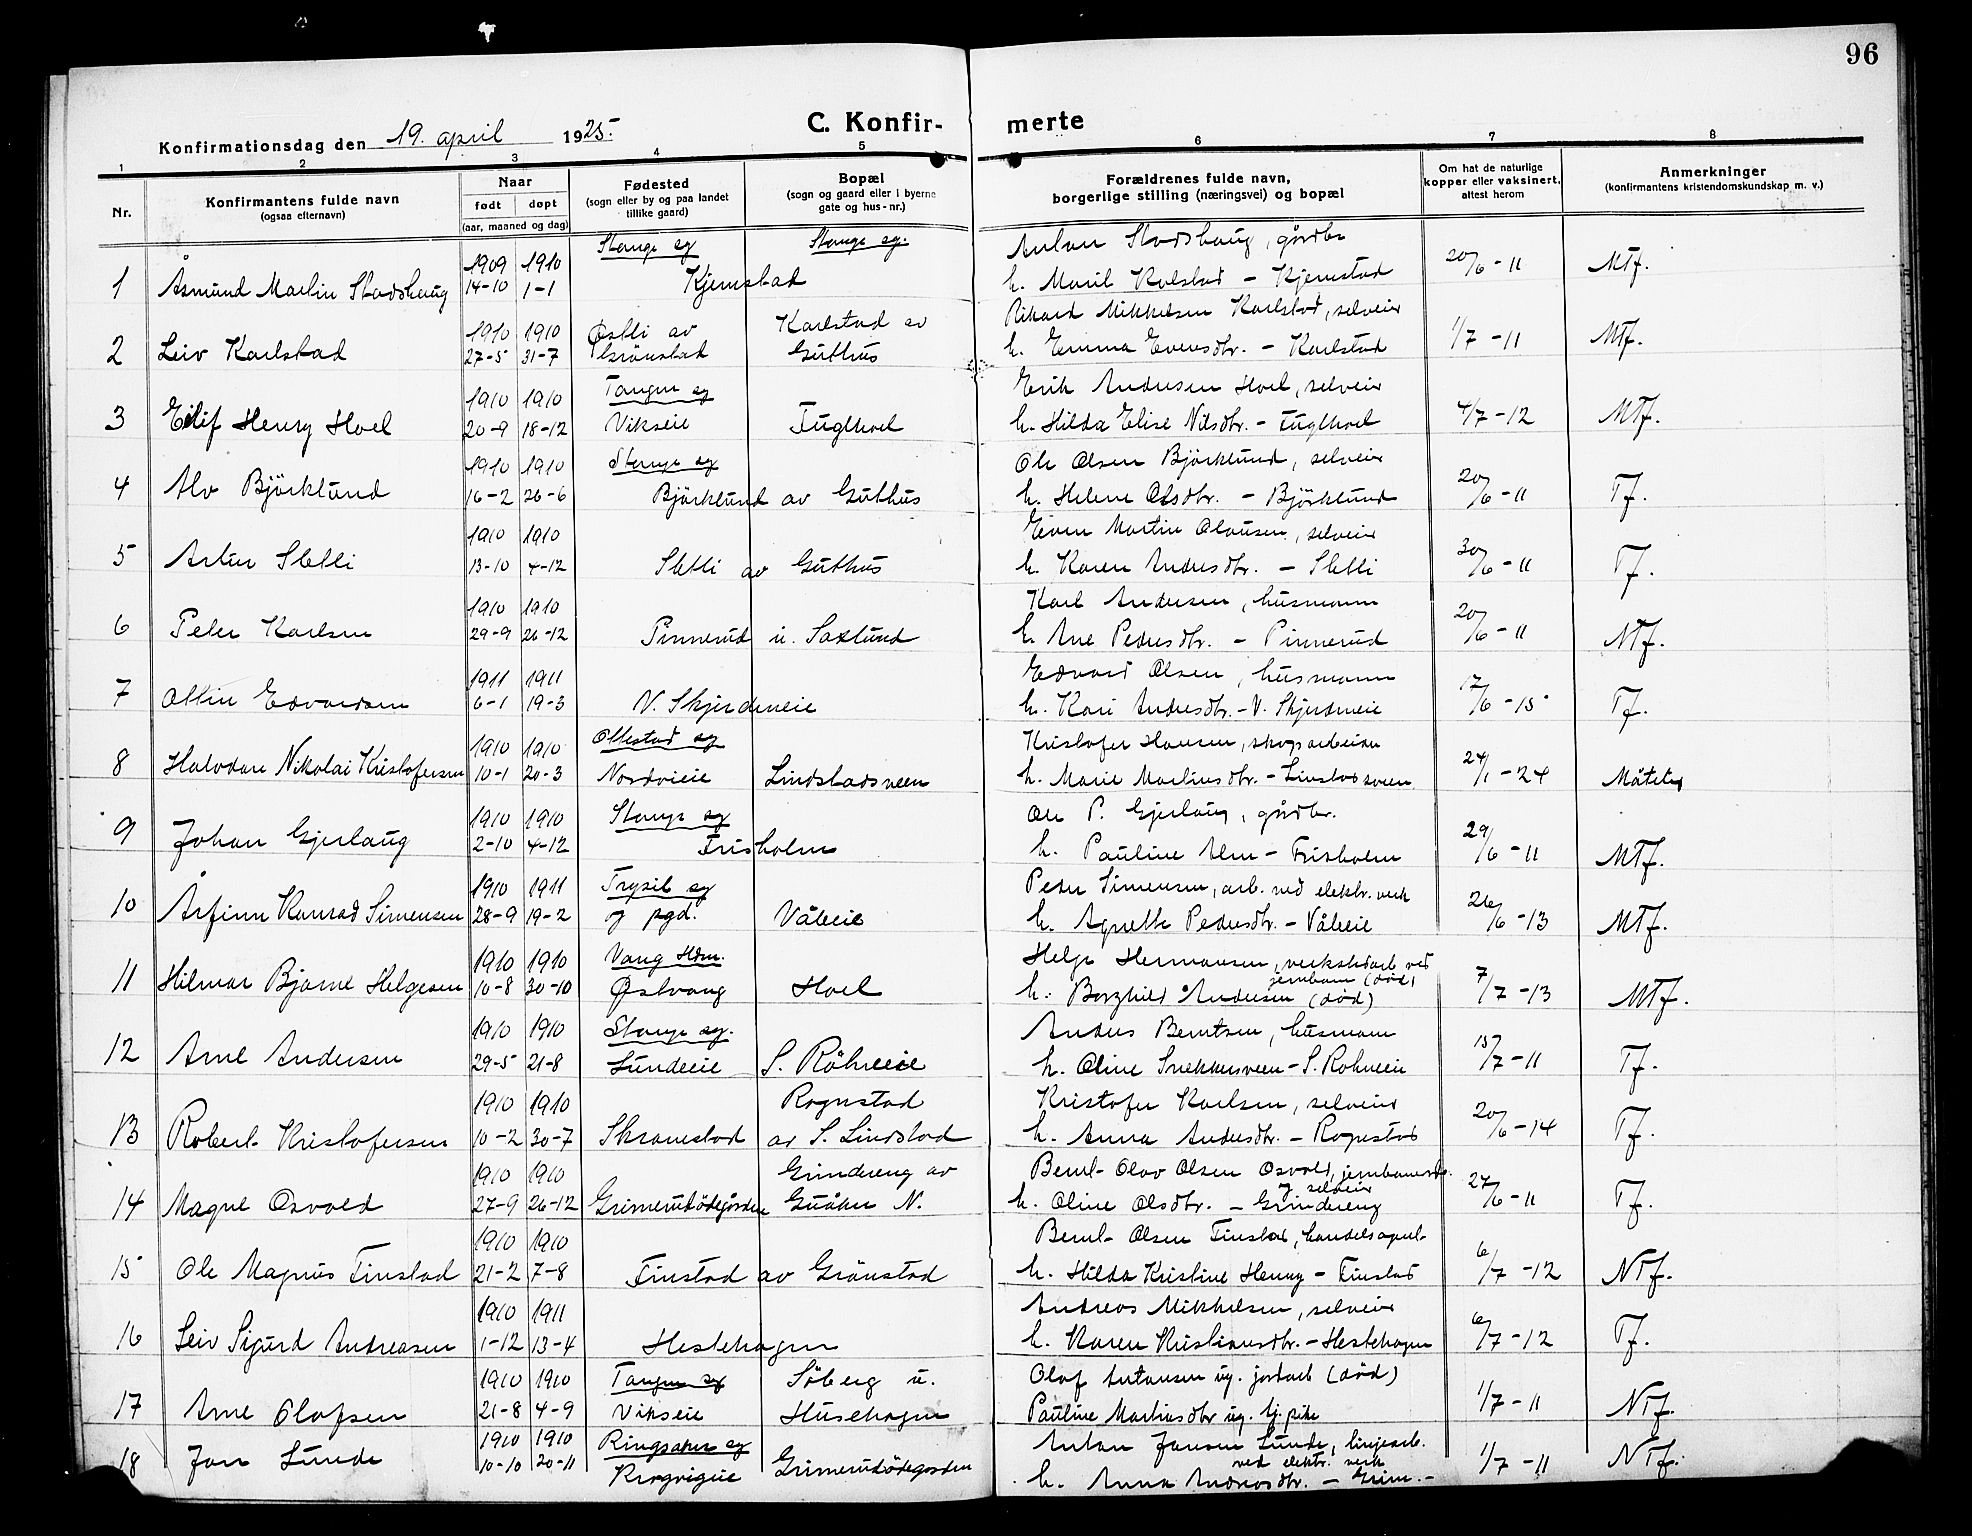 96
C. Konfirmerte
Konfirmationsdag den 19. april 1925.
1 2 3 4 5 6 7 8
Nr.
Konfirmantens fulde navn
(ogsaa efternavn)
Naar
født døpt
(aar, maaned og dag)
Fødested
(sogn eller by og paa landet
tillike gaard)
Bopæl
(sogn og gaard eller i byerne
gate og hus-nr.)
Forældrenes fulde navn,
borgerlige stilling (næringsvei) og bopæl
Om hat de naturlige
kopper eller vaksinert,
attest herom
Anmerkninger
(konfirmantens kristendomskundskap m. v.)
Stange sg Stange sg. Anton Stadshaug, gårdbr
1 Åsmund Martin Stadshaug 1909 14-10 1910 1-1 Kjemstad h. Marit Kolstad - Kjemstad 20/6-11 Mtf.
Rikard Mikkelsen Karlstad, selveier
2 Leiv Karlstad 1910 27-5 1910 31-7 Østli av Grönstad Karlstad av Guthus h. Emma Evensdtr. - Karlstad 1/7-11 Mtf.
Erik Andersen Hoel, selveier
3 Eilif Henry Hoel 1910 20-9 1910 18-12 Tangen sg Vikseie Fuglhoel h. Hilda Elise Nilsdtr. - Fuglhoel 4/7-12 Mtf.
Ole Olsen Björklund, selveier
4 Alv Björklund 1910 16-2 1910 26-6 Stange sg Björklund av Guthus h. Helene Olsdtr. - Björklund 20/6-11 Tf.
Even Martin Olausen, selveier
5 Artur Sletli 1910 13-10 1910 4-12 Sletli av Guthus h. Karen Andersdtr. - Sletli 30/6-11 Tf.
Karl Andersen, husmann
6 Peter Karlsen 1910 29-9 1910 26-12 Pinnerud u. Saxlund h. Ane Pedersdtr. - Pinnerud 20/6-11 Ntf.
Edvard Olsen, husmann
7 Ottin Edvardsen 1911 6-1 1911 19-3 V. Skjerdeneie h. Kari Andersdtr. - V. Skjerdeneie 17/6-15 Tf.
Kristofer Hansen, skogsarbeider
8 Halvdan Nikolai Kristofersen 1910 10-1 1910 20-3 Ottestad sg Nordvieie Lindstadsveen h. Marie Martinsdtr. - Linstadsveen 24/1-24 Måtelig
Ole P. Gjerlaug, gårdbr.
9 Johan Gjerlaug 1910 2-10 1910 4-12 Stange sg Frisholm h. Pauline Alm - Frisholm 29/6-11 Mtf.
Peder Simensen, arb. ved elektr. verk
10 Arfinn Konrad Simensen 1910 28-9 1911 19-2 Trysil sg og pgd. Våleie h. Agnette Pedersdtr. - Våleie 26/6-13 Mtf.
Helge Hermansen, verkstedarb. ved jernbanen (död)
11 Hilmar Bjarne Helgesen 1910 10-8 1910 30-10 Vang Hdm. Østvang Hoel h. Borghild Andersen (död) 7/7-13 Mtf.
Anders Berntsen, husmann
12 Arne Andersen 1910 29-5 1910 21-8 Stange sg. Lundeeie S. Röhneeie h. Oline Snekkersveen - S. Rohneeie 15/7-11 Tf.
Kristofer Karlsen, selveier
13 Robert Kristofersen 1910 10-2 1910 30-7 Skramstad Rognstad av S. Lindstad h. Anna Andersdtr. - Rognstad 20/6-14 Tf.
Bernt Olav Olsen Osvold, jernbanearb. og selveier
14 Magne Osvold 1910 27-9 1910 26-12 Grimerudödegården Grindereng av Guåker N. h. Oline Olsdtr. - Grindereng 27/6-11 Tf.
Bernt Olsen Finstad, handelsagent
15 Ole Magnus Finstad 1910 21-2 1910 7-8 Finstad av Grönstad h. Hilda Kristine Henny - Finstad 6/7-12 Ntf.
Andreas Mikkelsen, selveier
16 Leiv Sigurd Andreasen 1910 1-12 1911 13-4 Hestehagen h. Karen Kristiansdtr. - Hestehagen 6/7-12 Tf.
Olaf Antonsen ug. jordarb (död)
17 Arne Olafsen 1910 21-8 1910 4-9 Tangen sg Vikseie Söberg u. Husehagen Pauline Martinsdtr ug. tj.pike 1/7-11 Ntf.
Anton Jansen Lunde, linjearb. ved elektr. verk
18 Jon Lunde 1910 10-10 1910 20-11 Ringsaker sg Grimerudödegården h. Anna Andreasdtr. - Grim.- 1/7-11 Ntf.